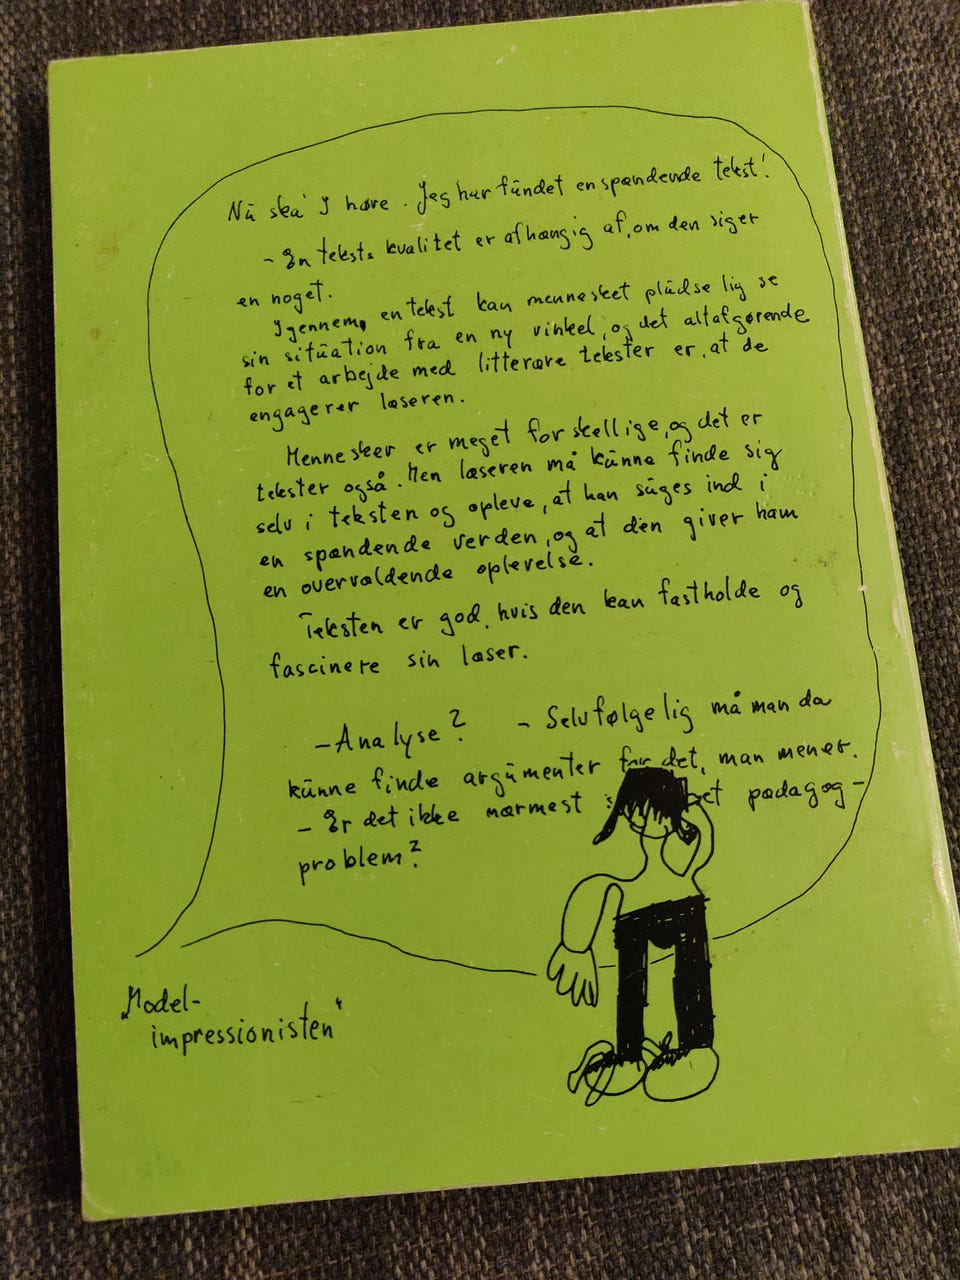 Nu ska' I høre. Jeg har fundet en spændende tekst!
- En teksts kvalitet er afhængig af, om den siger
en noget.
Igennem en tekst kan mennesket pludselig se
sin situation fra en ny vinkel, og det altafgørende
for et arbejde med litterære tekster er, at de
engagerer læseren.
Mennesker er meget forskellige, og det er
tekster også. Men læseren må kunne finde sig
selv i teksten og opleve, at han suges ind i
en spændende verden, og at den giver ham
en overvældende oplevelse.
Teksten er god, hvis den kan fastholde og
fascinere sin læser.
- Analyse? - Selvfølgelig må man da
kunne finde argumenter for det, man mener.
- Er det ikke nærmest pædagog-
problem?
"Model-
impressionisten"